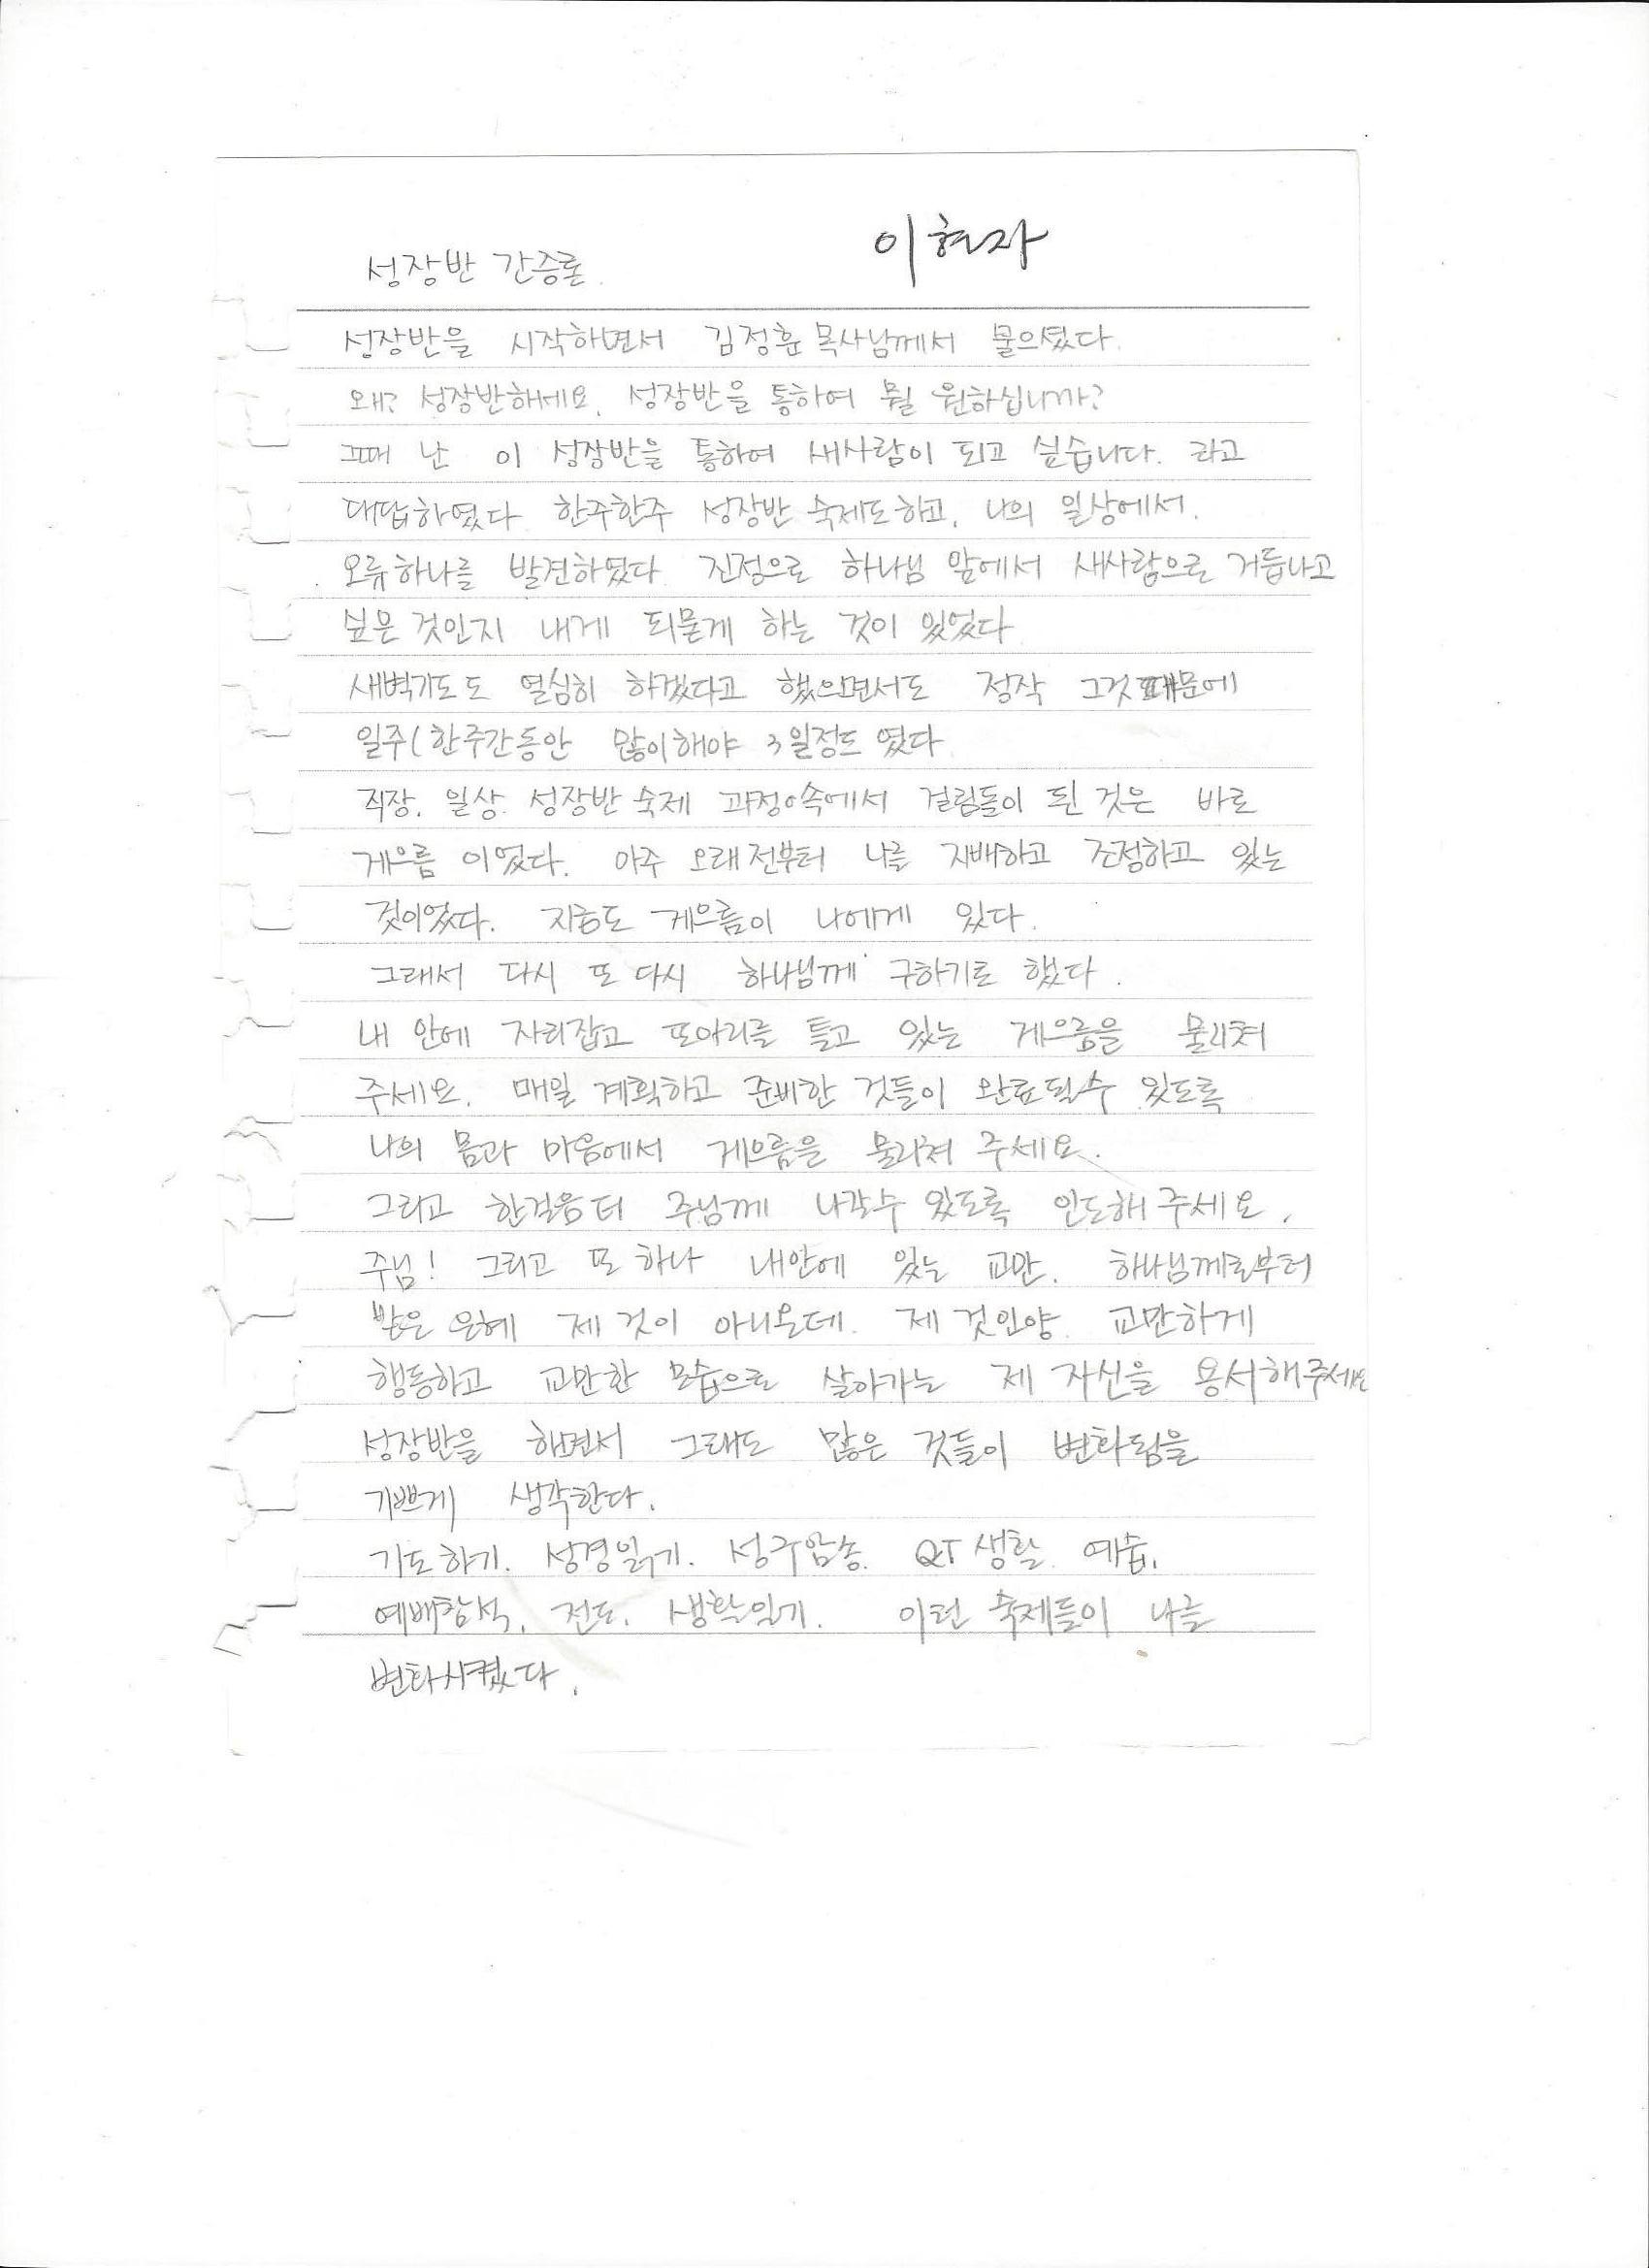 이현자
성장반 간증문
성장반을 시작하면서 김정훈 목사님께서 물으셨다.
왜? 성장반하세요. 성장반을 통하여 뭘 원하십니까?
그때 난 이 성장반을 통하여 새사람이 되고 싶습니다. 라고
대답하였다 한주한주 성장반 숙제도하고, 나의 일상에서.
오류하나를 발견하였다 진정으로 하나님 앞에서 새사람으로 거듭나고
싶은 것인지 내게 되묻게 하는 것이 있었다
새벽기도도 열심히 하겠다고 했으면서도 정작 그것 때문에
일주(한주간동안 많이해야 3일정도 였다
직장. 일상. 성장반 숙제 과정속에서 걸림돌이 된 것은 바로
게으름 이었다. 아주 오래전부터 나를 지배하고 조정하고 있는
것이었다. 지금도 게으름이 나에게 있다.
그래서 다시 또 다시 하나님께 구하기로 했다.
내 안에 자리잡고 또아리를 틀고 있는 게으름을 물리쳐
주세요. 매일 계획하고 준비한 것들이 완료될수 있도록
나의 몸과 마음에서 게으름을 물리쳐 주세요.
그리고 한걸음 더 주님께 나갈수 있도록 인도해 주세요.
주님! 그리고 또 하나 내안에 있는 교만. 하나님께로부터
받은 은혜 제 것이 아니온데. 제 것인양 교만하게
행동하고 교만한 모습으로 살아가는 제 자신을 용서해주세요
성장반을 하면서 그래도 많은 것들이 변화됨을
기쁘게 생각한다.
기도하기. 성경읽기. 성구암송. QT 생활. 예습.
예배참석. 전도. 생활일기. 이런 숙제들이 나를
변화시켰다.